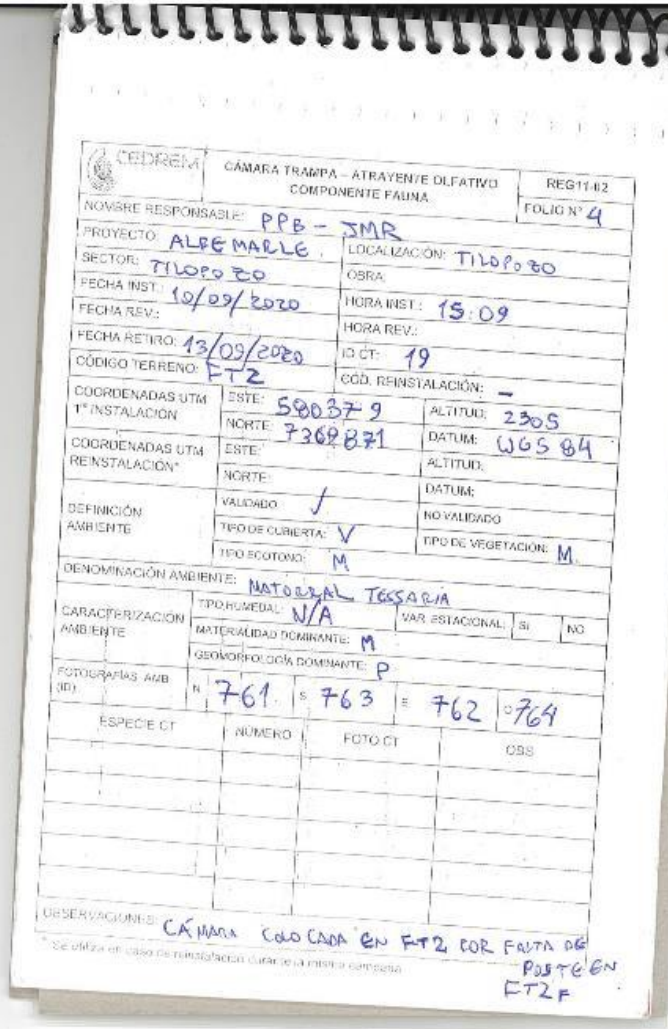 CEDREM
CÁMARA TRAMPA – ATRAYENTE OLFATIVO
COMPONENTE FAUNA
REG11-02
FOLIO N° 4
NOMBRE RESPONSABLE: PPB - JMR
PROYECTO: ALBEMARLE
LOCALIZACIÓN: TILOPOZO
SECTOR: TILOPOZO
OBRA:
FECHA INST.: 10/09/2020
HORA INST.: 15:09
FECHA REV.:
HORA REV.:
FECHA RETIRO: 13/09/2020
ID CT: 19
CÓDIGO TERRENO: FT2
CÓD. REINSTALACIÓN: -
COORDENADAS UTM
1° INSTALACIÓN
ESTE: 580379
ALTITUD: 2305
NORTE: 7369871
DATUM: WGS 84
COORDENADAS UTM
REINSTALACIÓN*
ESTE:
ALTITUD:
NORTE:
DATUM:
DEFINICIÓN
AMBIENTE
VALIDADO ✓
NO VALIDADO
TIPO DE CUBIERTA: V
TIPO DE VEGETACIÓN: M
TIPO ECOTONO: M
DENOMINACIÓN AMBIENTE: MATORRAL TESSARIA
CARACTERIZACIÓN
AMBIENTE
TIPO HUMEDAL: N/A
VAR. ESTACIONAL: SI NO
MATERIALIDAD DOMINANTE: M
GEOMORFOLOGÍA DOMINANTE: P
FOTOGRAFÍAS AMB
(ID)
N 761 S 763 E 762 O 764
ESPECIE CT NÚMERO FOTO CT OBS
OBSERVACIONES: CÁMARA COLOCADA EN FT2 POR FALTA DE
POSTE EN
FT2F
* Se utiliza en caso de reinstalación durante la misma campaña